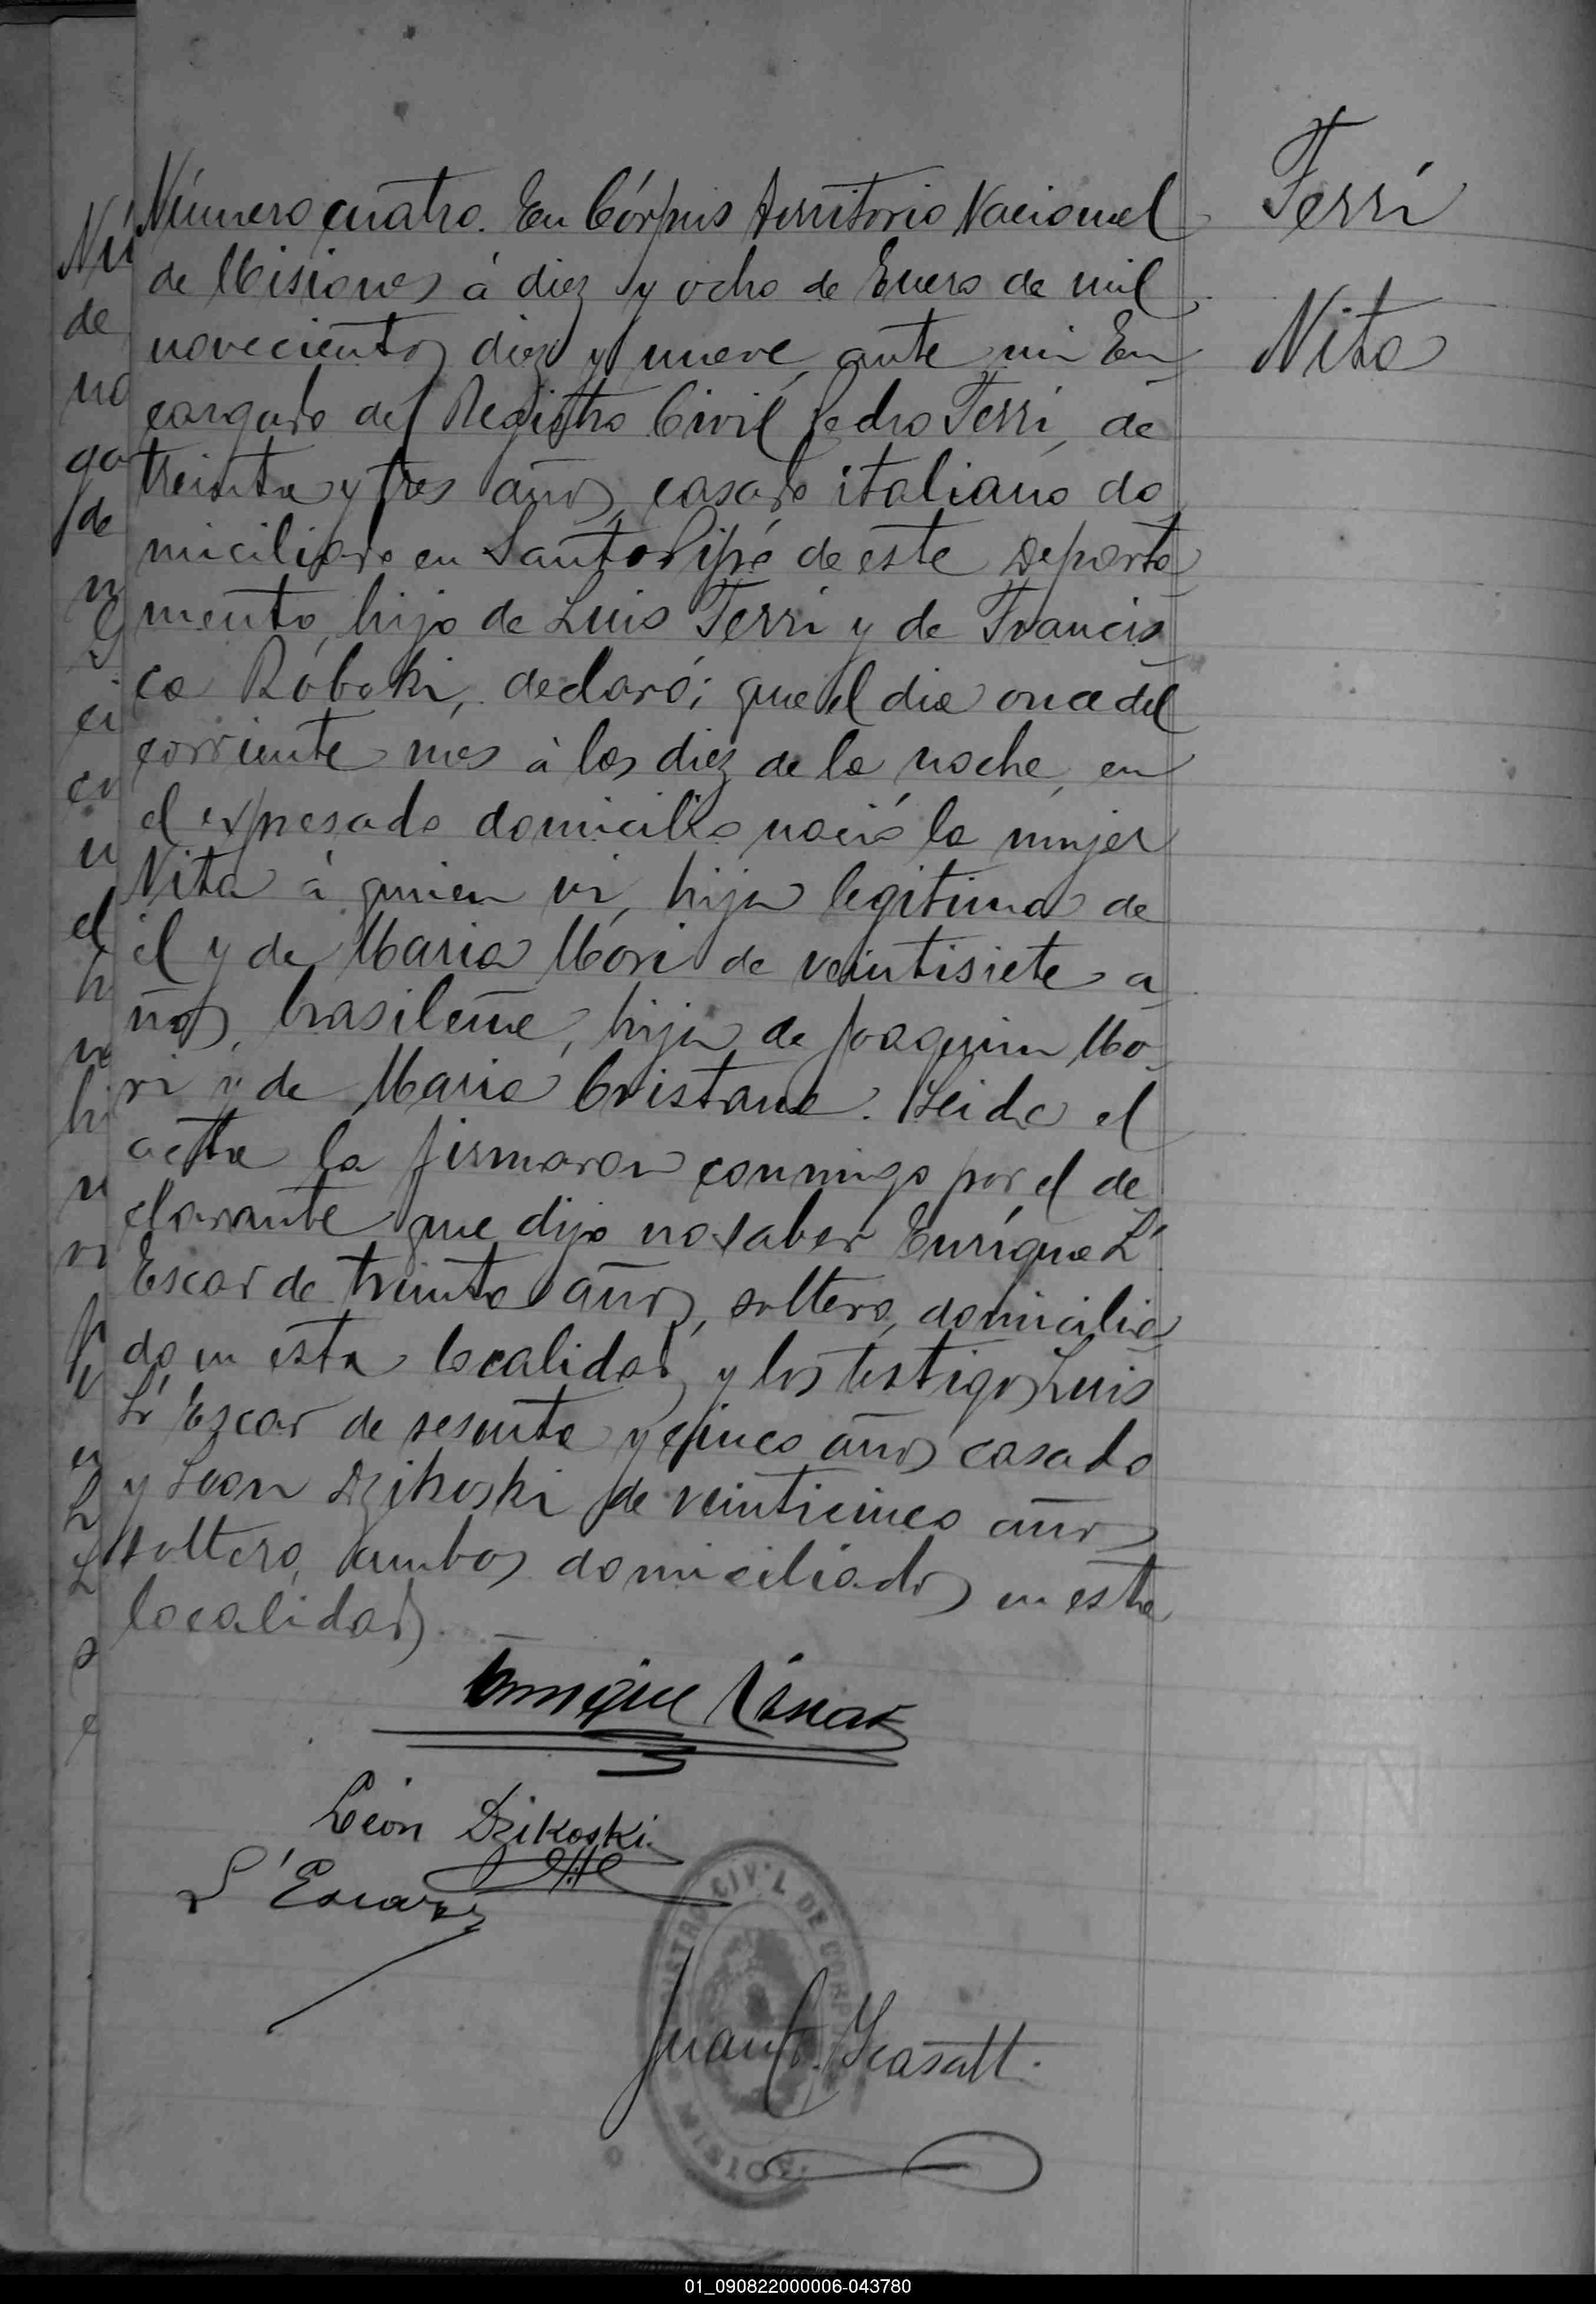 Número cuatro. En Córpus territorio Nacional
de Misiones á diez y ocho de Enero de mil
novecientos diez y nueve, ante mi En
cargado del Registro Civil Pedro Ferri, de
treinta y tres años, casado italiano do
miciliado en Santo Pipó de este Departa
mento, hijo de Luis Ferri y de Francis
ca Róboki, declaró; que el dia once del
corriente mes à las diez de la noche, en
el expresado domicilio nació la mujer
Nita á quien vi, hija legitima de
él y de Maria Mori de veintisiete a
ños, brasileña, hija de Joaquin Mo
ri y de Maria Cristana. Leida el
acta la firmaron conmigo por el de
clarante que dijo no saber Enrique L'
Escar de treinta años, soltero, domicilia
do en esta localidad, y los testigos Luis
L' Escar de sesenta y cinco años casado
y Leon Dzikoski de veinticinco años
soltero, ambos domiciliados en esta
localidad.
Ferri
Nita
Enrique L'Escar
Léon Dzikoski
L'Escar
CIVIL DE
Juan
01_090822000006-043780